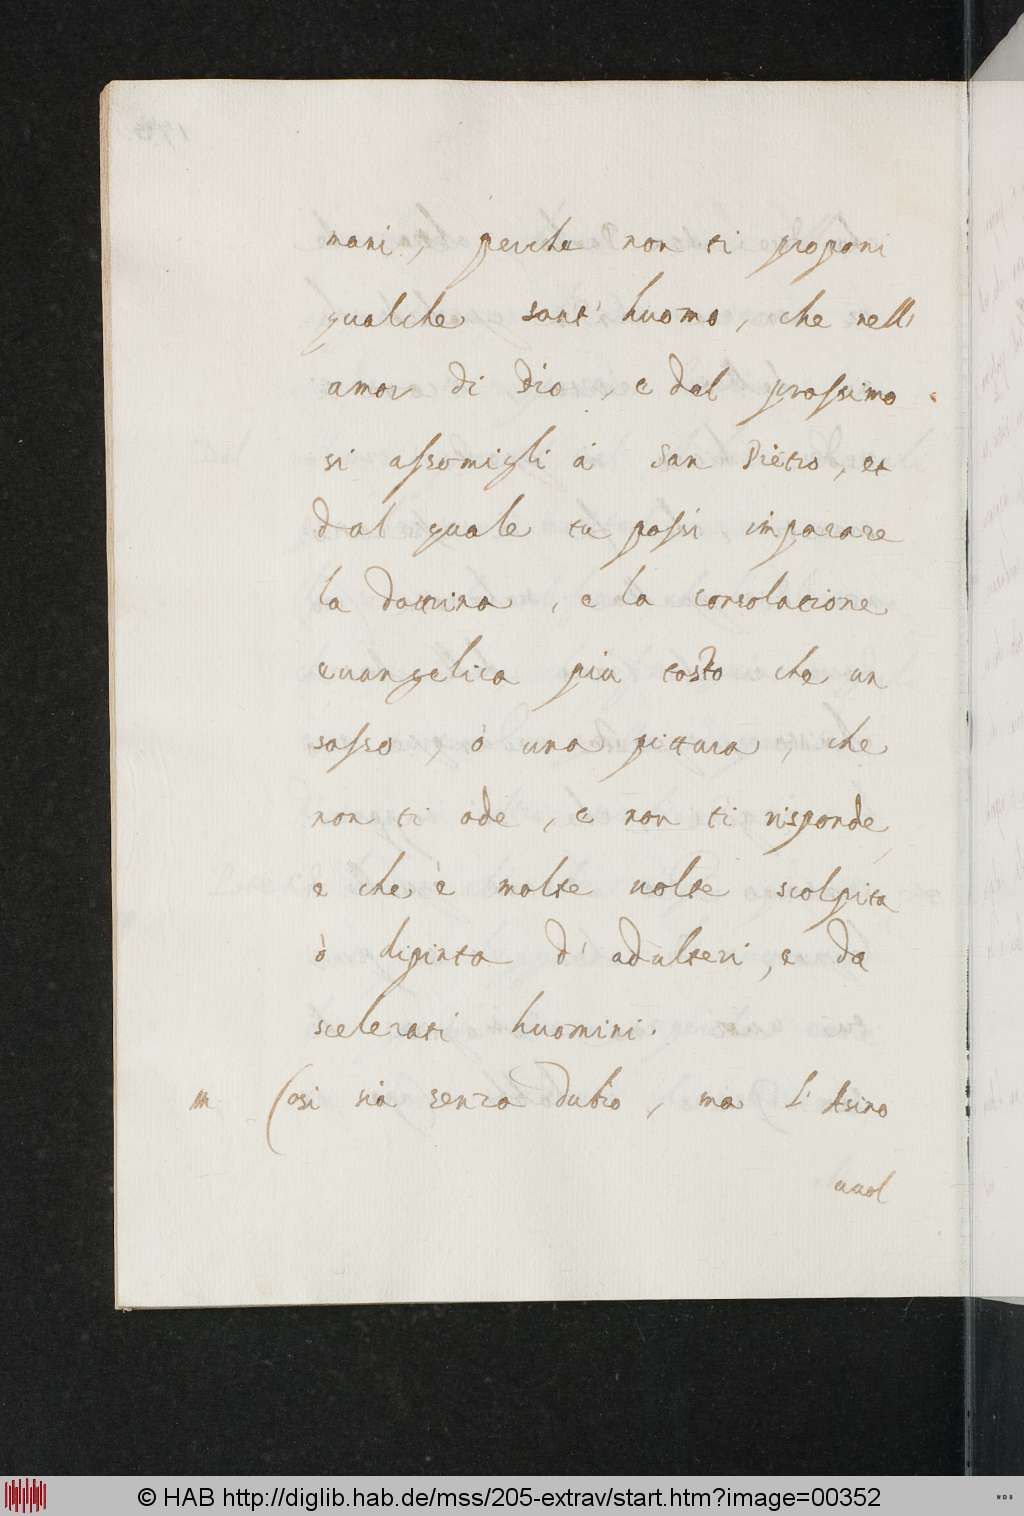 mani, perche non ti proponi
qualche sant' huomo, che nell'
amor di Dio, e del prossimo
si assomigli à San Pietro, et
dal quale tu possi imparare
la dottrina, e la consolatione
euangelica piu tosto che un
sasso, ò una pittura, che
non ti ode, e non ti risponde
e che è molte uolte scolpita
ò dipinta d' adulteri, e da
scelerati huomini.
m Cosi sia senza dubio, ma l' Asino
uuol
© HAB http://diglib.hab.de/mss/205-extrav/start.htm?image=00352